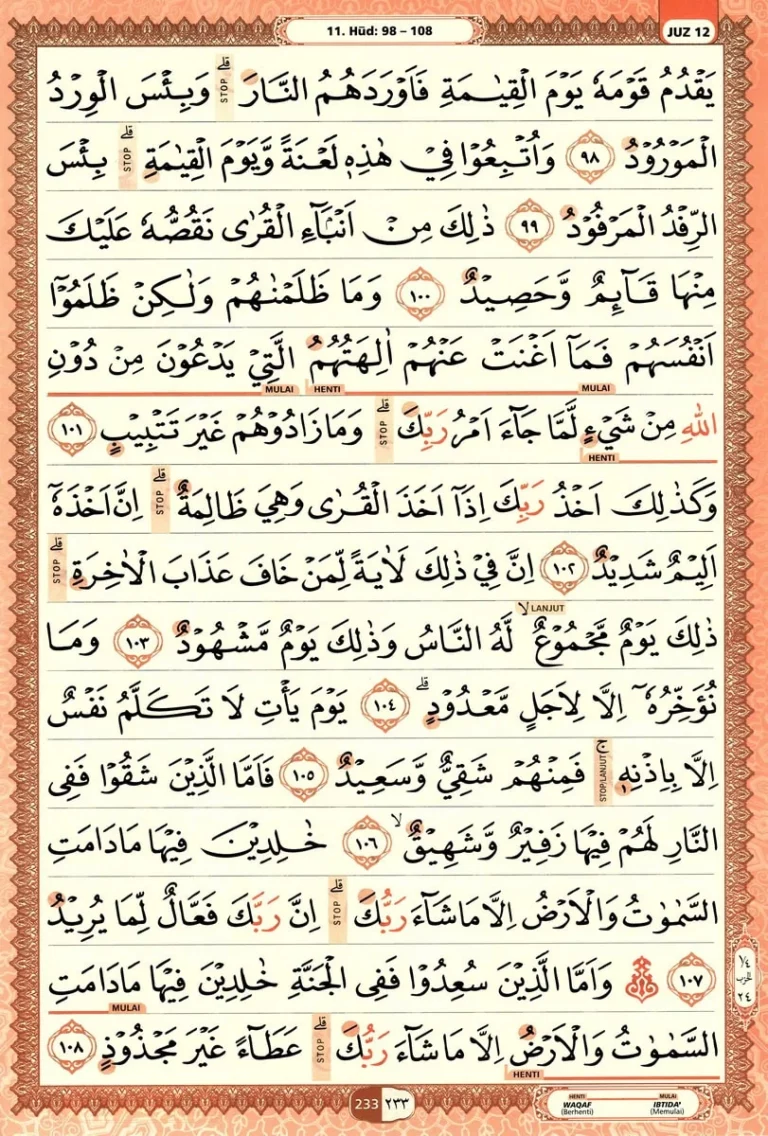 11. Hūd: 98 – 108
JUZ 12
يَقْدُمُ قَوْمَهٗ يَوْمَ الْقِيٰمَةِ فَاَوْرَدَهُمُ النَّارَ ۗ STOP وَبِئْسَ الْوِرْدُ
الْمَوْرُوْدُ ٩٨ وَاُتْبِعُوْا فِيْ هٰذِهٖ لَعْنَةً وَّيَوْمَ الْقِيٰمَةِ ۗ STOP بِئْسَ
الرِّفْدُ الْمَرْفُوْدُ ٩٩ ذٰلِكَ مِنْ اَنْۢبَاۤءِ الْقُرٰى نَقُصُّهٗ عَلَيْكَ
مِنْهَا قَاۤىِٕمٌ وَّحَصِيْدٌ ١٠٠ وَمَا ظَلَمْنٰهُمْ وَلٰكِنْ ظَلَمُوْٓا
اَنْفُسَهُمْ فَمَآ اَغْنَتْ عَنْهُمْ اٰلِهَتُهُمُ الَّتِيْ يَدْعُوْنَ مِنْ دُوْنِ
MULAI HENTI MULAI
اللّٰهِ مِنْ شَيْءٍ لَّمَّا جَاۤءَ اَمْرُ رَبِّكَ ۗ STOP وَمَا زَادُوْهُمْ غَيْرَ تَتْبِيْبٍ ١٠١
HENTI
وَكَذٰلِكَ اَخْذُ رَبِّكَ اِذَآ اَخَذَ الْقُرٰى وَهِيَ ظَالِمَةٌ ۗ STOP اِنَّ اَخْذَهٗٓ
اَلِيْمٌ شَدِيْدٌ ١٠٢ اِنَّ فِيْ ذٰلِكَ لَاٰيَةً لِّمَنْ خَافَ عَذَابَ الْاٰخِرَةِ ۗ STOP
ذٰلِكَ يَوْمٌ مَّجْمُوْعٌ ۙ LANJUT لَّهُ النَّاسُ وَذٰلِكَ يَوْمٌ مَّشْهُوْدٌ ١٠٣ وَمَا
نُؤَخِّرُهٗٓ اِلَّا لِاَجَلٍ مَّعْدُوْدٍ ۗ ١٠٤ يَوْمَ يَأْتِ لَا تَكَلَّمُ نَفْسٌ
اِلَّا بِاِذْنِهٖ ۚ STOP/LANJUT فَمِنْهُمْ شَقِيٌّ وَّسَعِيْدٌ ١٠٥ فَاَمَّا الَّذِيْنَ شَقُوْا فَفِى
النَّارِ لَهُمْ فِيْهَا زَفِيْرٌ وَّشَهِيْقٌ ۙ ١٠٦ خٰلِدِيْنَ فِيْهَا مَا دَامَتِ
السَّمٰوٰتُ وَالْاَرْضُ اِلَّا مَا شَاۤءَ رَبُّكَ ۗ STOP اِنَّ رَبَّكَ فَعَّالٌ لِّمَا يُرِيْدُ
١٠٧ وَاَمَّا الَّذِيْنَ سُعِدُوْا فَفِى الْجَنَّةِ خٰلِدِيْنَ فِيْهَا مَا دَامَتِ
MULAI
السَّمٰوٰتُ وَالْاَرْضُ اِلَّا مَا شَاۤءَ رَبُّكَ ۗ STOP عَطَاۤءً غَيْرَ مَجْذُوْذٍ ١٠٨
HENTI
١/٤
الحزب
٢٤
233 ٢٣٣
HENTI MULAI
WAQAF IBTIDA'
(Berhenti) (Memulai)